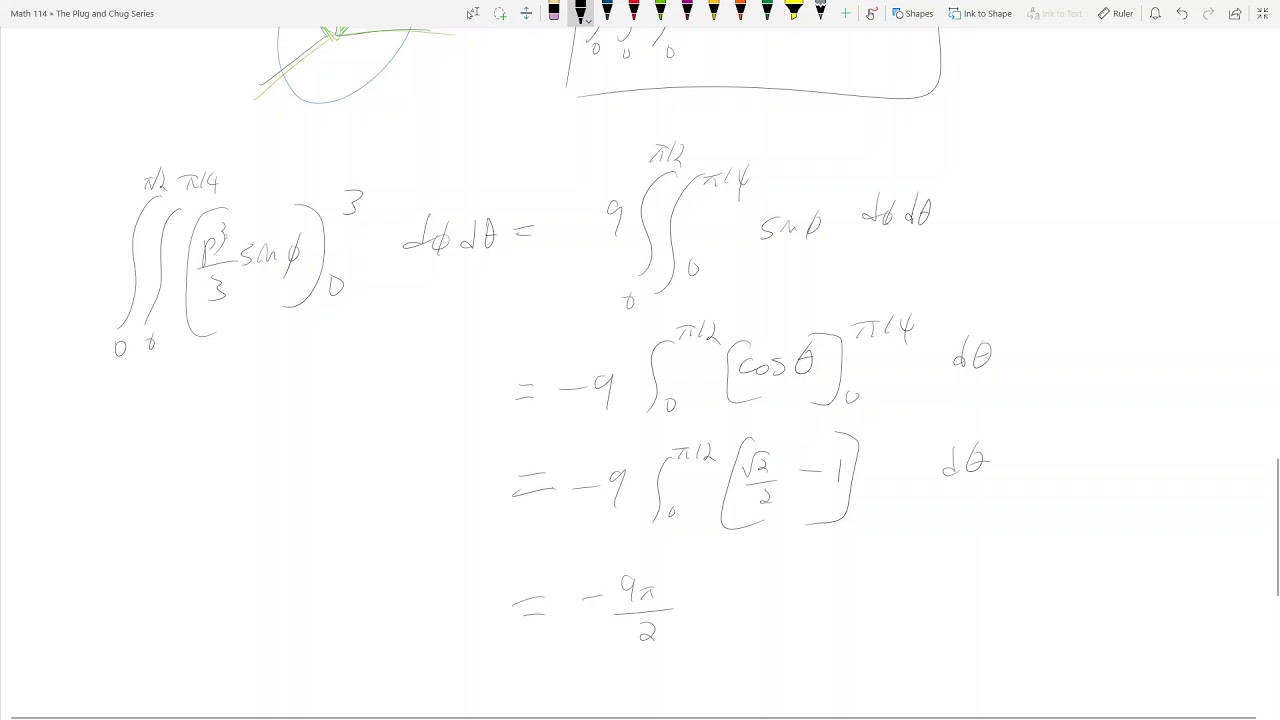 Math 114 » The Plug and Chug Series
Shapes Ink to Shape Ink to Text Ruler
0 0 0
∫_0^{π/2} ∫_0^{π/4} [ρ^3/3 sin φ]_0^3 dφ dθ = 9 ∫_0^{π/2} ∫_0^{π/4} sin φ dφ dθ
= -9 ∫_0^{π/2} [cos θ]_0^{π/4} dθ
= -9 ∫_0^{π/2} [√2/2 - 1] dθ
= - 9π/2